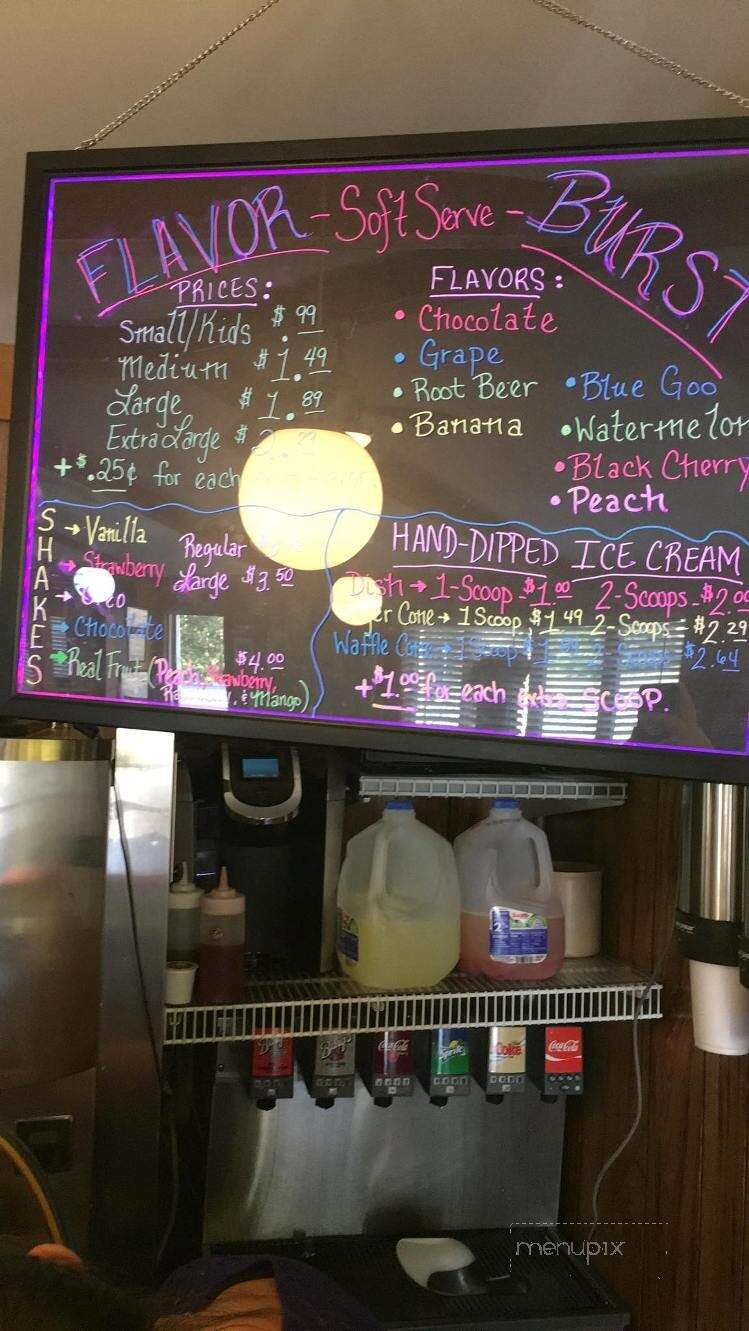 FLAVOR - Soft Serve - BURST
PRICES:
Small/Kids $.99
Medium $1.49
Large $1.89
Extra Large $
+ $.25¢ for each
FLAVORS:
• Chocolate
• Grape
• Root Beer
• Banana
• Blue Goo
• Watermelon
• Black Cherry
• Peach
SHAKES
→ Vanilla
→ Strawberry
→
→ Chocolate
→ Real Fruit (Peach, Strawberry,
& Mango)
$4.00
Regular
Large $3.50
HAND-DIPPED ICE CREAM
Dish → 1-Scoop - $1.00 2-Scoops - $2.00
Cone → 1 Scoop $1.49 2-Scoops - $2.29
Waffle Cone → 1 Scoop 2-Scoops $2.64
+ $1.00 for each extra SCOOP.
2%
Barq's
Barq's
Coca-Cola
Sprite
Diet Coke
Coca-Cola
menupix